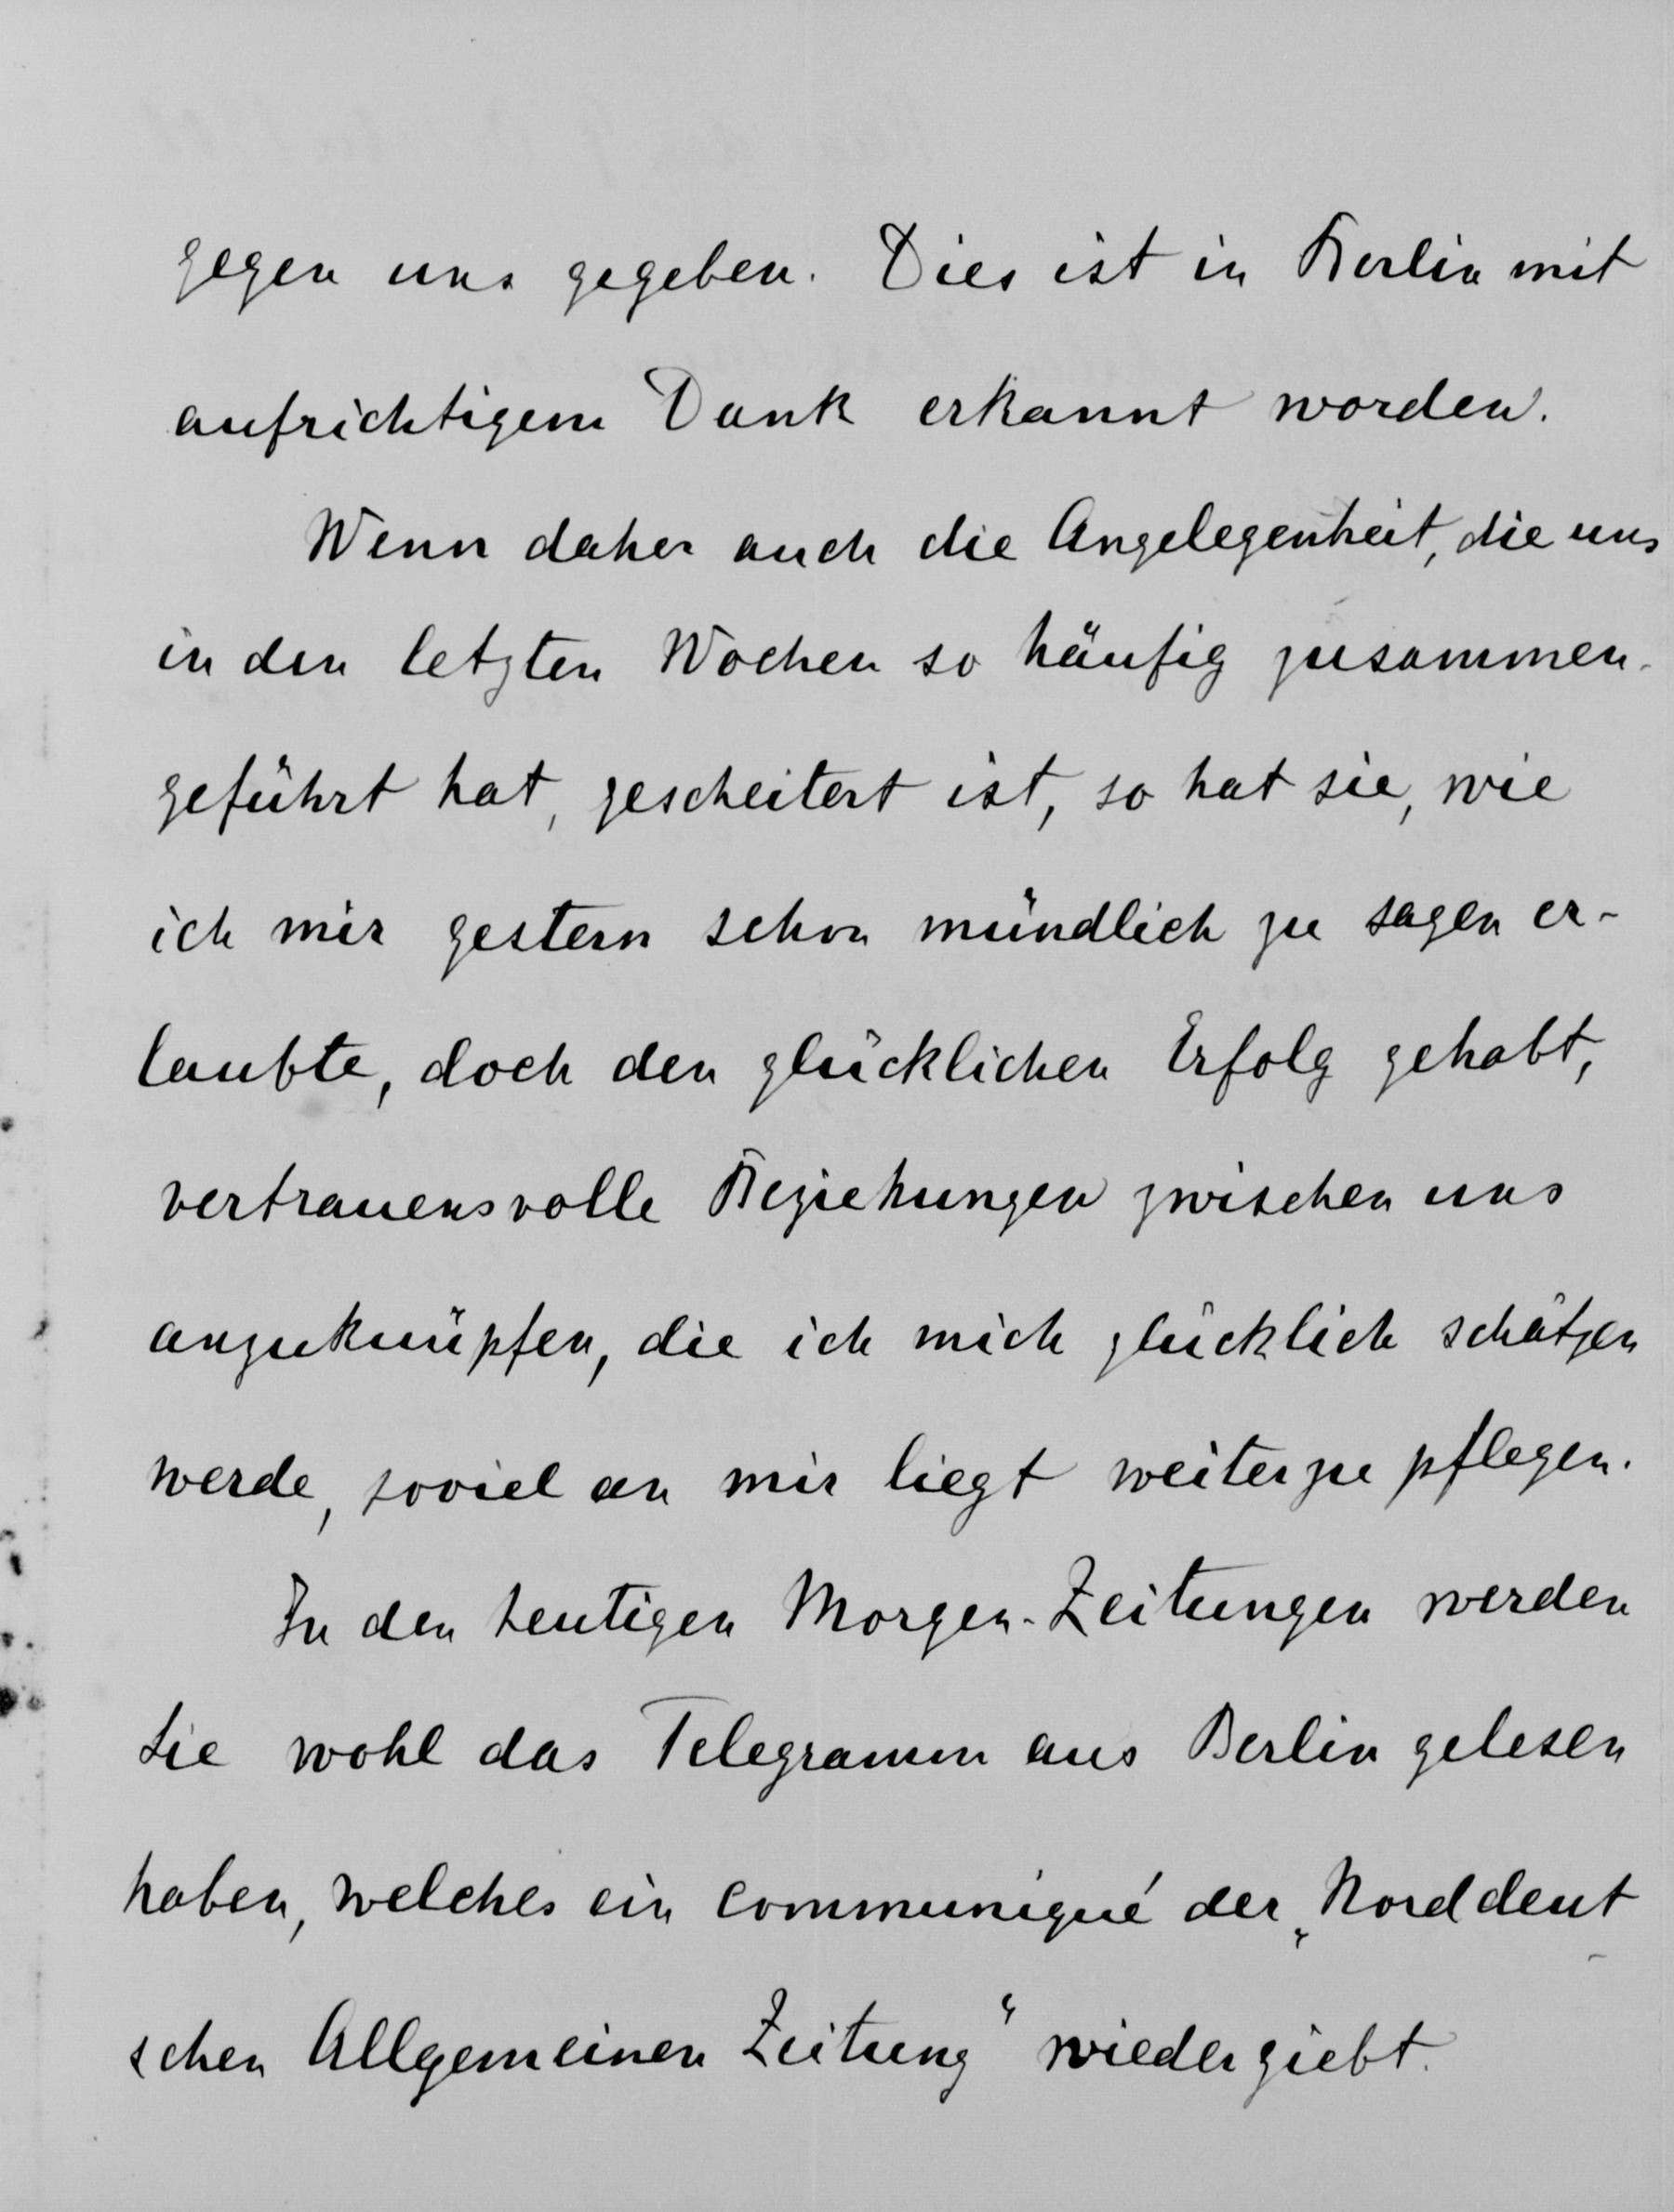 gegen uns gegeben. Dies ist in Berlin mit
aufrichtigem Dank erkannt worden.
Wenn daher auch die Angelegenheit, die uns
in den letzten Wochen so häufig zusammen-
geführt hat, gescheitert ist, so hat sie, wie
ich mir gestern schon mündlich zu sagen er-
laubte, doch den glücklichen Erfolg gehabt,
vertrauensvolle Beziehungen zwischen uns
anzuknüpfen, die ich mich glücklich schätzen
werde, soviel an mir liegt weiterzu pflegen.
In den heutigen Morgen-Zeitungen werden
Sie wohl das Telegramm aus Berlin gelesen
haben, welches ein communiqué der „Norddeut
schen Allgemeinen Zeitung“ wiedergiebt.